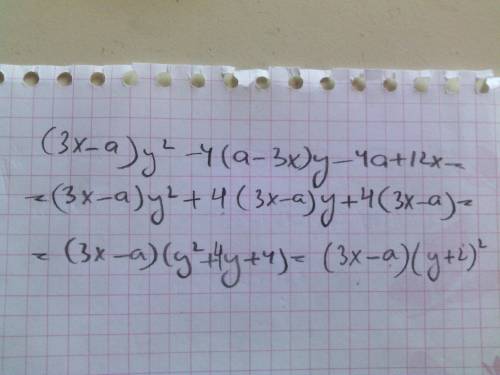 (3x-a)y² -4(a-3x)y-4a+12x=
=(3x-a)y²+4(3x-a)y+4(3x-a)=
=(3x-a)(y²+4y+4)= (3x-a)(y+2)²